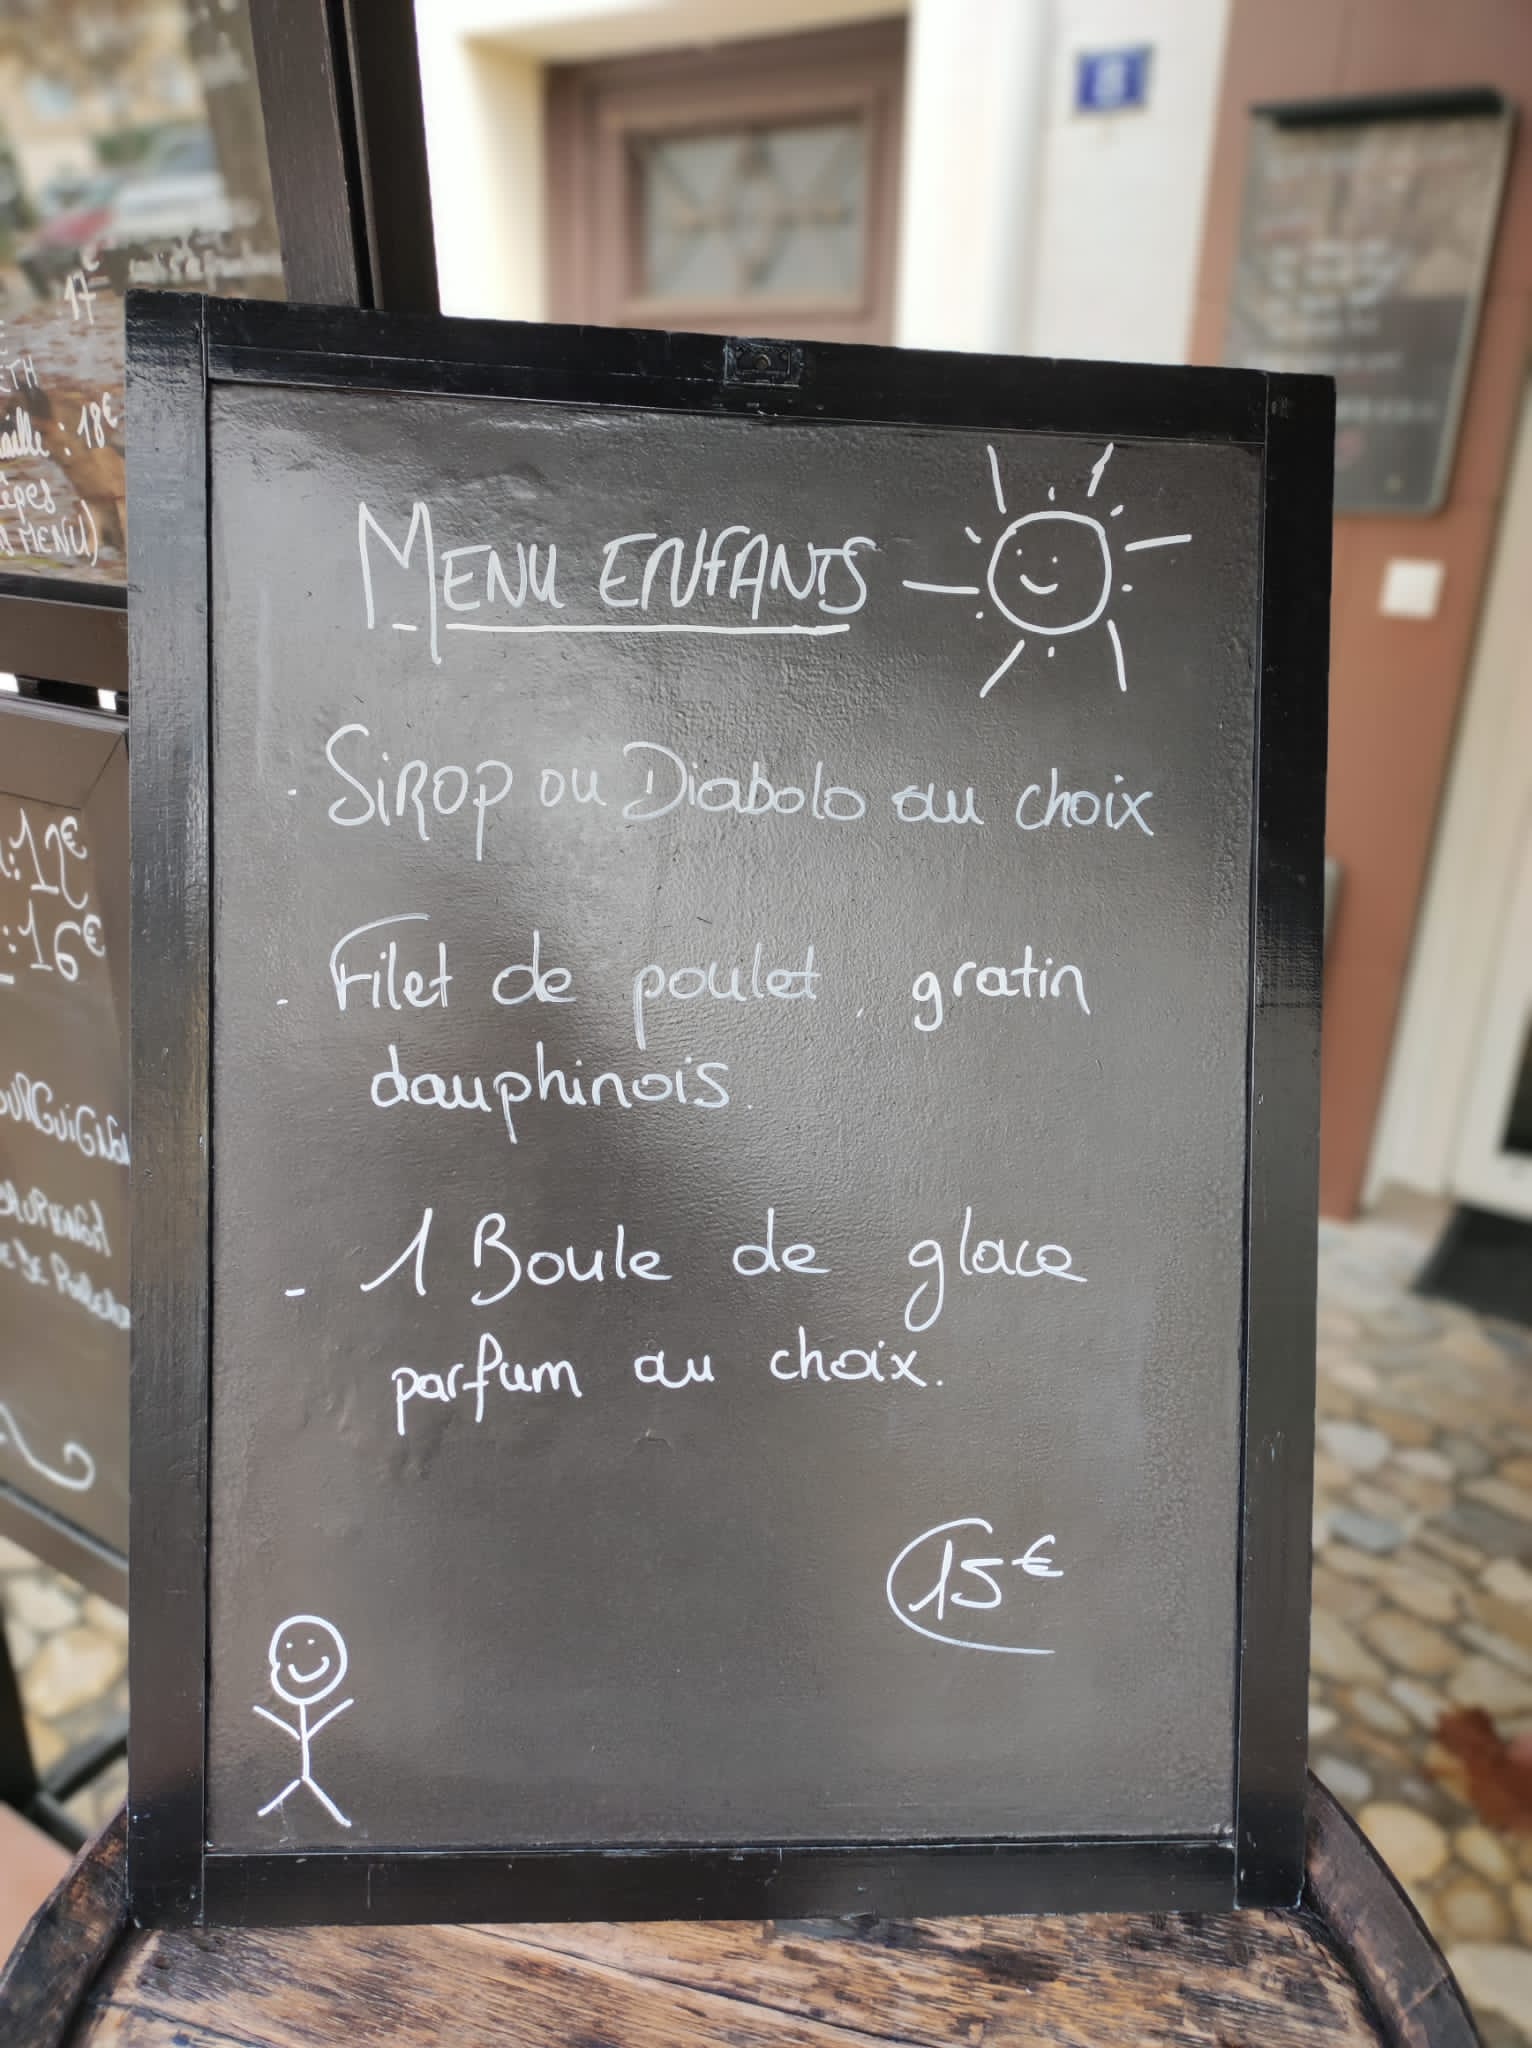 MENU ENFANTS
. SIROP ou Diabolo au choix
. Filet de poulet, gratin
dauphinois.
- 1 Boule de glace
parfum au choix.
15€
17€
18€
MENU)
:12€
:16€